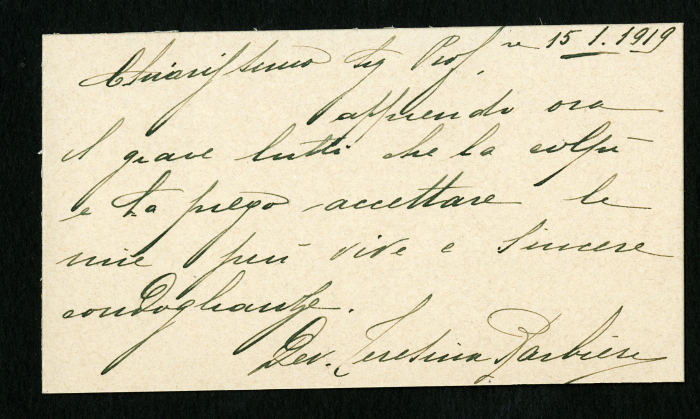 15.1.1919
Chiarissimo Sig Prof.
apprendo ora
il grave lutto che la colpì
e La prego accettare le
mie più vive e sincere
condoglianze.
Dev. Teresina Barbieri